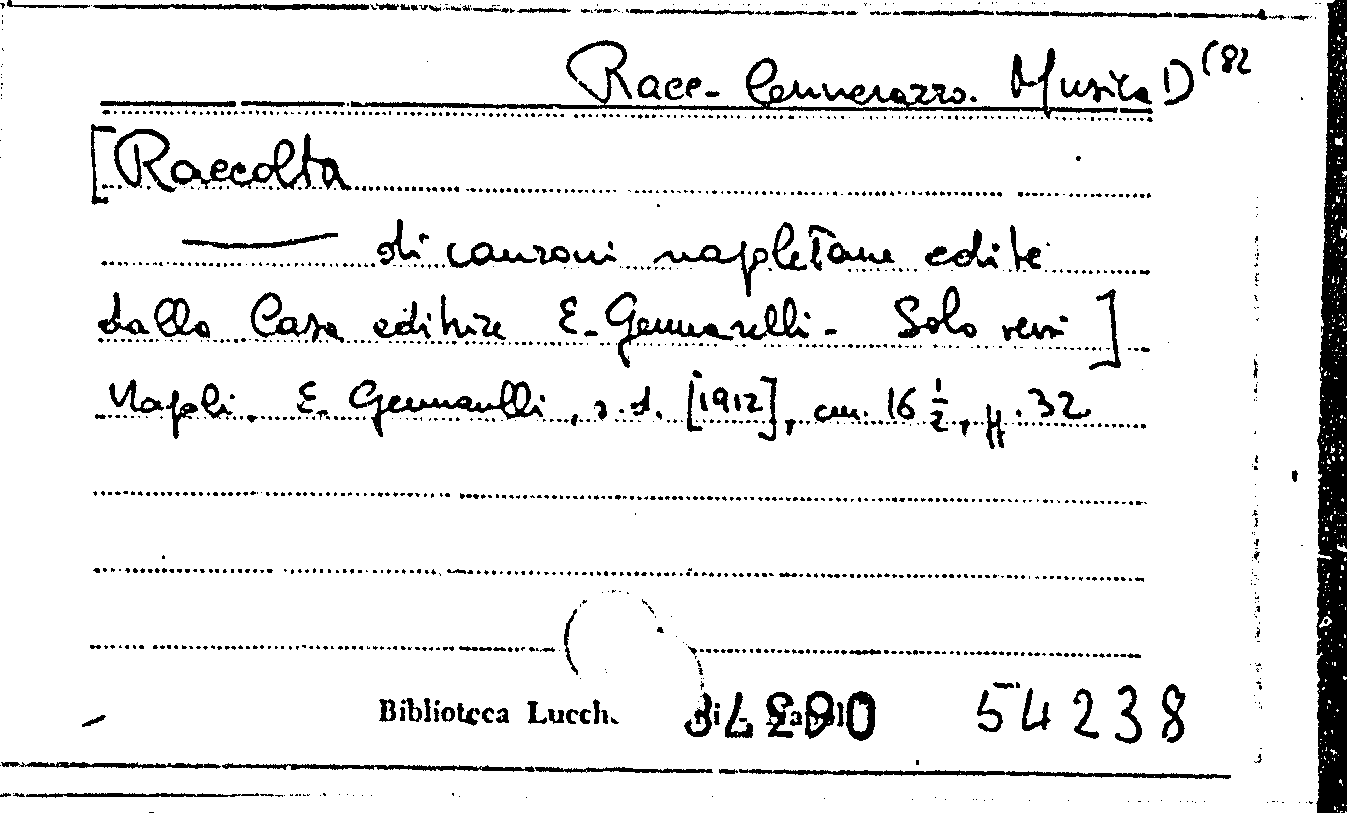 Racc. Cennerazzo. Musica D (82
[Raccolta
—— di canzoni napoletane edite
dalla Casa editrice E. Gennarelli - Solo versi]
Napoli. E. Gennarelli, s. d. [1912], cm. 16 ½, pp. 32.
Biblioteca Lucch. 54238